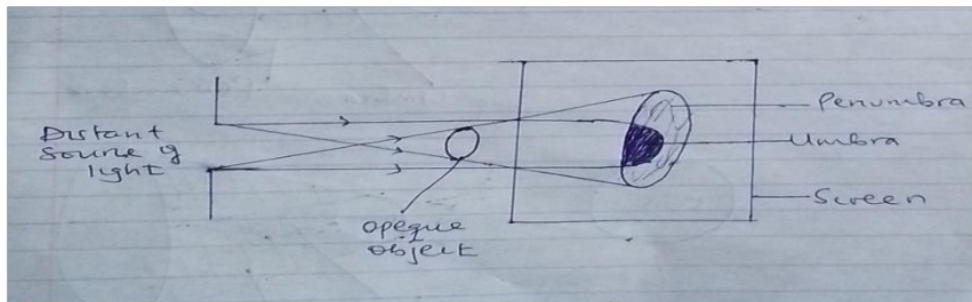 Distant
Source of
light
Opeque
object
Penumbra
Umbra
Screen